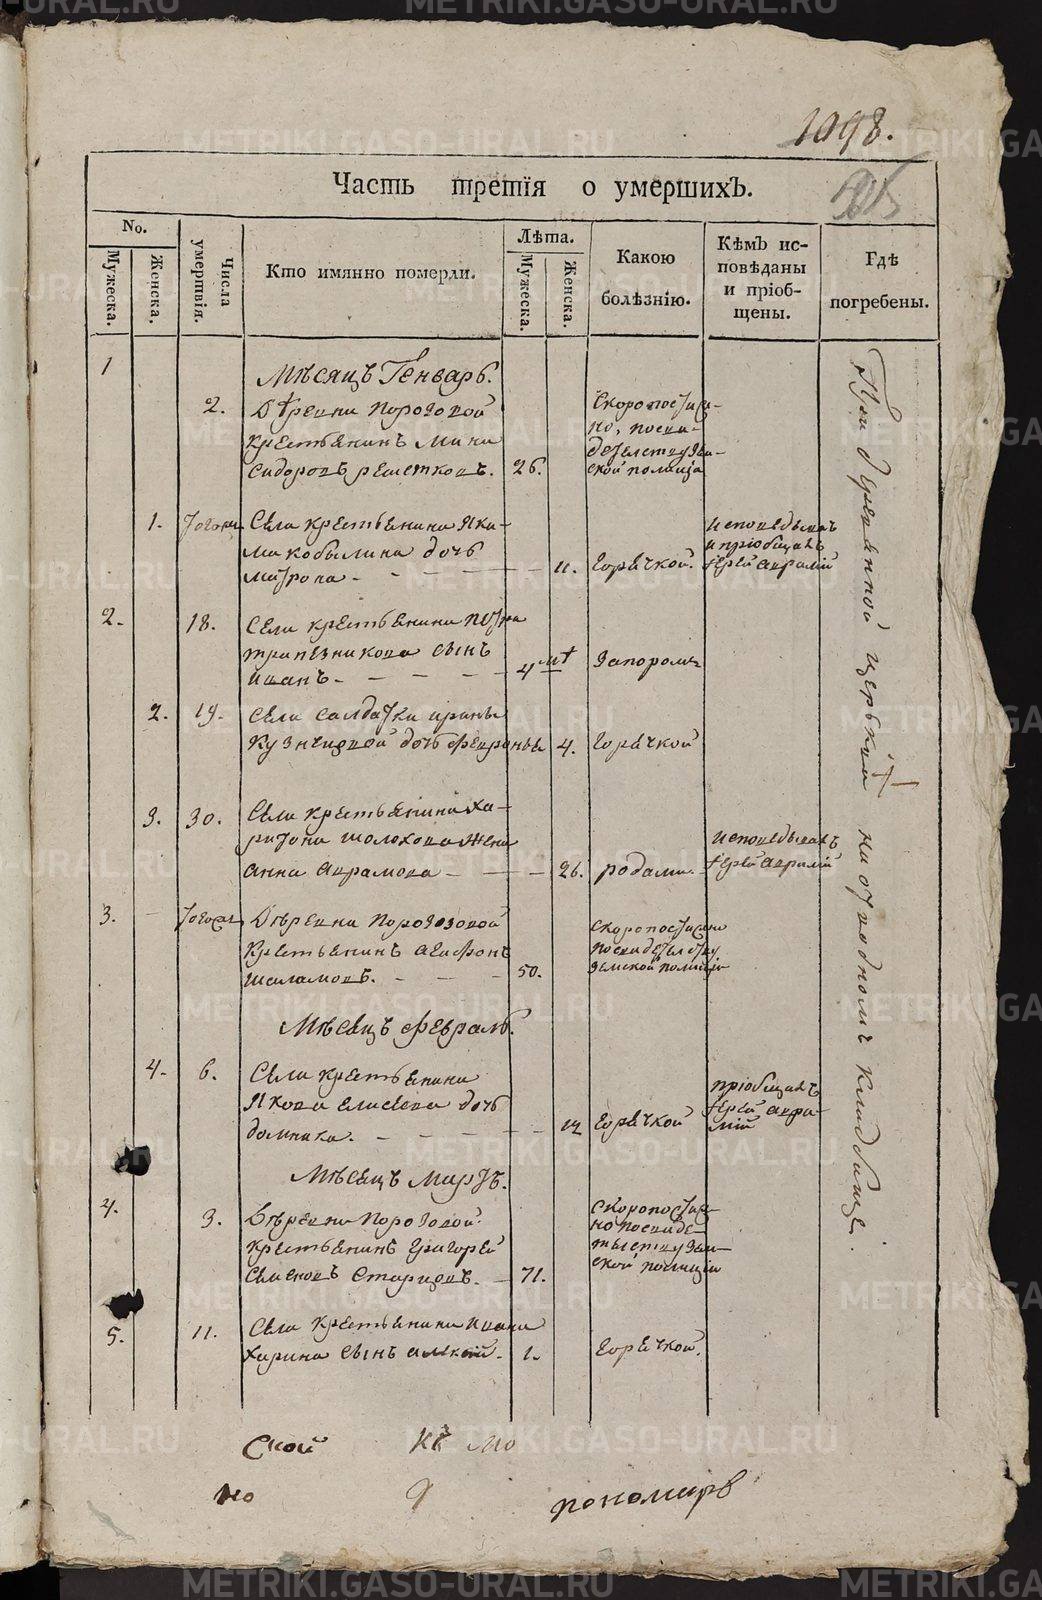 1098.
Часть третія о умершихъ.
No.
Мужеска.
Женска.
Числа умертвія.
Кто имянно померли.
Лѣта.
Мужеска.
Женска.
Какою
болѣзнію.
Кѣмъ ис-
повѣданы
и пріоб-
щены.
Гдѣ
погребены.
1
Мѣсяцъ Генварь.
2.
Деревни Порозовой
крестьянинъ Мина
Сидоровъ Решетковъ.
26.
Скоропостиж-
но, посви-
детелству Зем-
ской полиціи
1.
тогож
Села крестьянина Яки-
ма Кобылина дочь
Матрона
11.
горячкой.
исповедывалъ
и пріобщалъ
Іерей Аврамій
2.
18.
Села крестьянина Петра
Трапезникова сынъ
Иванъ
4 мц
запоромъ
2.
19.
Села салдатки Ирины
Кузнецовой дочь Февронья
4.
горячкой
3.
30.
Села крестьянина Ха-
ритона Шолохова жена
Анна Аврамова
26.
родами.
исповедывалъ
Іерей Аврамій
3.
тогож
Деревни Порозовой
крестьянинъ Агафонъ
Шаламовъ.
50.
скоропостижно
посвидетелству
Земской полиціи
Мѣсяцъ Февраль.
4.
6.
Села крестьянина
Якова Елисеева дочь
Домника.
12
горячкой
пріобщалъ
Іерей Авра-
мій
Мѣсяцъ Мартъ.
4.
3.
Деревни Порозовой
крестьянинъ Григорей
Семеновъ Старцовъ.
71.
скоропостиж-
но посвиде-
телству Зем-
ской полиціи
5.
11.
Села крестьянина Ивана
Харина сынъ Алексей
1.
горячкой.
При деревянной церькви на отводномъ кладбище.
ской къ мо
но я пономарь
METRIKI.GASO-URAL.RU